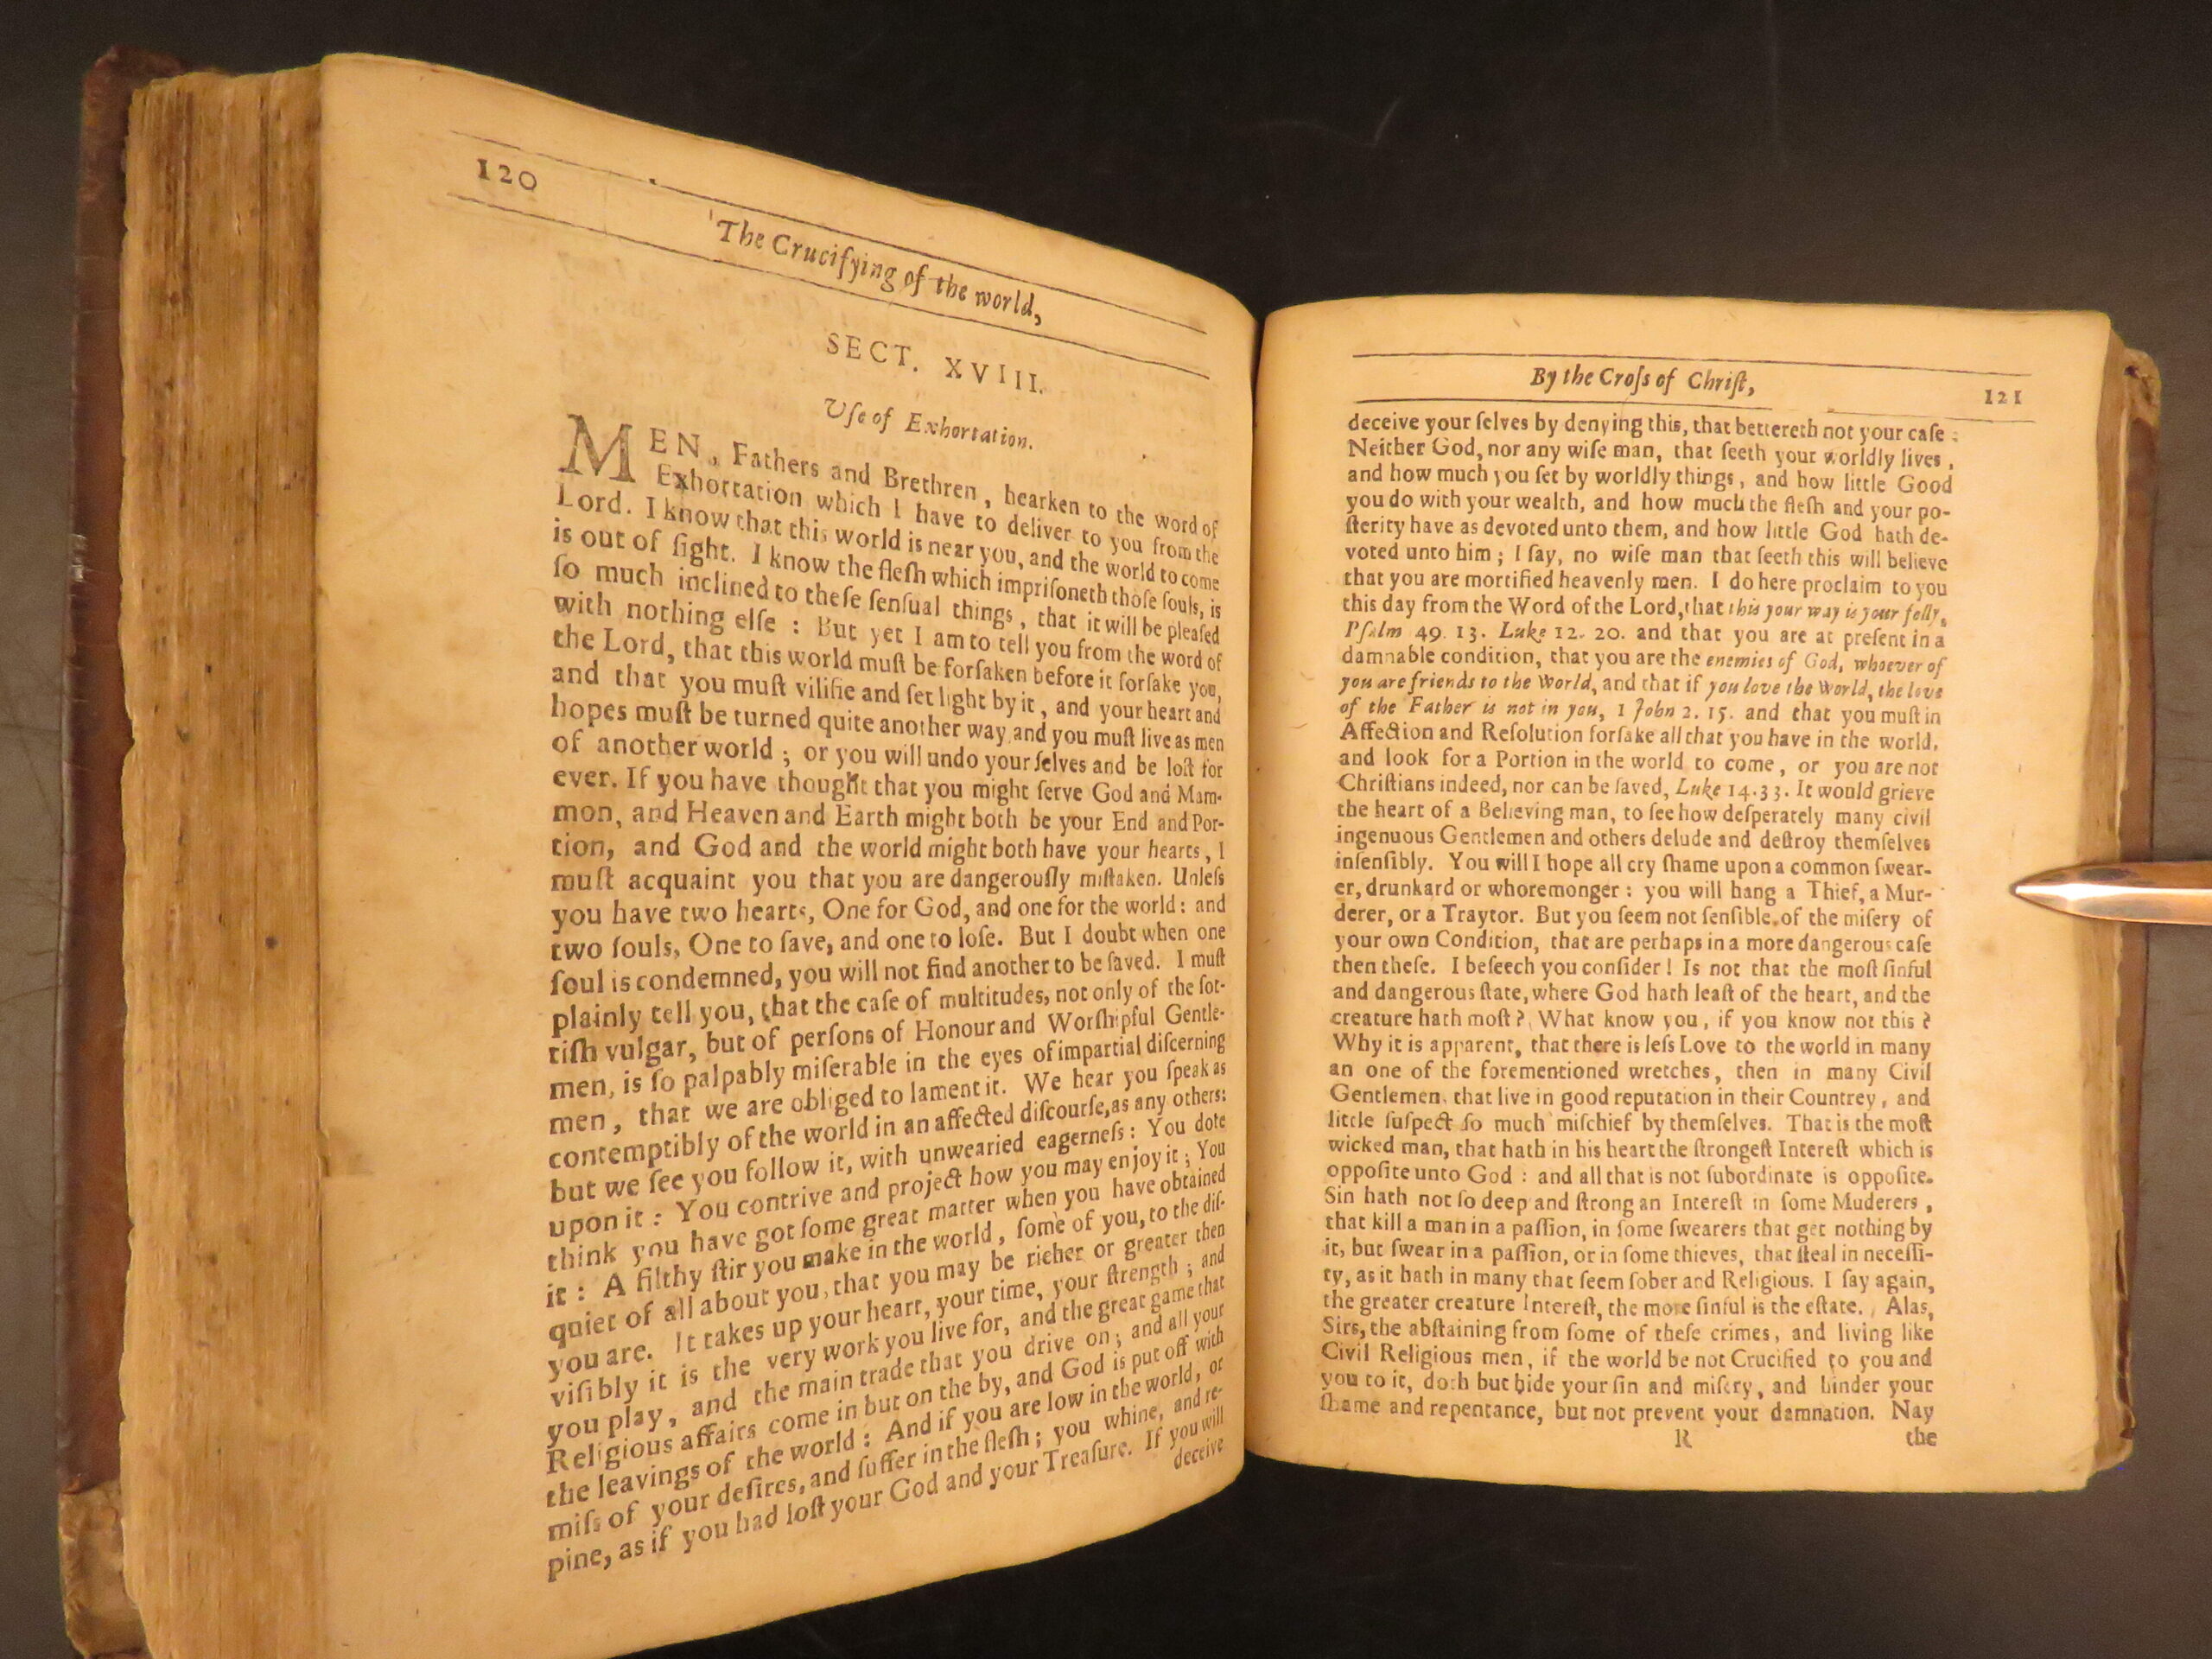 120
The Crucifying of the world,
SECT. XVIII.
Uſe of Exhortation.
MEN, Fathers and Brethren, hearken to the word of
Exhortation which I have to deliver to you from the
Lord. I know that this world is near you, and the world to come
is out of ſight. I know the fleſh which impriſoneth thoſe ſouls, is
ſo much inclined to theſe ſenſual things, that it will be pleaſed
with nothing elſe: But yet I am to tell you from the word of
the Lord, that this world muſt be forſaken before it forſake you,
and that you muſt vilifie and ſet light by it, and your heart and
hopes muſt be turned quite another way, and you muſt live as men
of another world; or you will undo your ſelves and be loſt for
ever. If you have thought that you might ſerve God and Mam-
mon, and Heaven and Earth might both be your End and Por-
tion, and God and the world might both have your hearts, I
muſt acquaint you that you are dangerouſly miſtaken. Unleſs
you have two hearts, One for God, and one for the world: and
two ſouls, One to ſave, and one to loſe. But I doubt when one
ſoul is condemned, you will not find another to be ſaved. I muſt
plainly tell you, that the caſe of multitudes, not only of the ſot-
tiſh vulgar, but of perſons of Honour and Worſhipful Gentle-
men, is ſo palpably miſerable in the eyes of impartial diſcerning
men, that we are obliged to lament it. We hear you ſpeak as
contemptibly of the world in an affected diſcourſe, as any others:
but we ſee you follow it, with unwearied eagerneſs: You dote
upon it: You contrive and project how you may enjoy it; You
think you have got ſome great matter when you have obtained
it: A filthy ſtir you make in the world, ſome of you, to the diſ-
quiet of all about you, that you may be richer or greater then
you are. It takes up your heart, your time, your ſtrength; and
viſibly it is the very work you live for, and the great game that
you play, and the main trade that you drive on; and all your
Religious affairs come in but on the by, and God is put off with
the leavings of the world: And if you are low in the world, or
miſs of your deſires, and ſuffer in the fleſh; you whine, and re-
pine, as if you had loſt your God and your Treaſure. If you will
deceive
By the Croſs of Chriſt,
121
deceive your ſelves by denying this, that bettereth not your caſe:
Neither God, nor any wiſe man, that ſeeth your worldly lives,
and how much you ſet by worldly things, and how little Good
you do with your wealth, and how much the fleſh and your po-
ſterity have as devoted unto them, and how little God hath de-
voted unto him; I ſay, no wiſe man that ſeeth this will believe
that you are mortified heavenly men. I do here proclaim to you
this day from the Word of the Lord, that this your way is your folly,
Pſalm 49. 13. Luke 12. 20. and that you are at preſent in a
damnable condition, that you are the enemies of God, whoever of
you are friends to the World, and that if you love the World, the love
of the Father is not in you, 1 John 2. 15. and that you muſt in
Affection and Reſolution forſake all that you have in the world,
and look for a Portion in the world to come, or you are not
Chriſtians indeed, nor can be ſaved, Luke 14.33. It would grieve
the heart of a Believing man, to ſee how deſperately many civil
ingenuous Gentlemen and others delude and deſtroy themſelves
inſenſibly. You will I hope all cry ſhame upon a common ſwear-
er, drunkard or whoremonger: you will hang a Thief, a Mur-
derer, or a Traytor. But you ſeem not ſenſible of the miſery of
your own Condition, that are perhaps in a more dangerous caſe
then theſe. I beſeech you conſider! Is not that the moſt ſinful
and dangerous ſtate, where God hath leaſt of the heart, and the
creature hath moſt? What know you, if you know not this?
Why it is apparent, that there is leſs Love to the world in many
an one of the forementioned wretches, then in many Civil
Gentlemen, that live in good reputation in their Countrey, and
little ſuſpect ſo much miſchief by themſelves. That is the moſt
wicked man, that hath in his heart the ſtrongeſt Intereſt which is
oppoſite unto God: and all that is not ſubordinate is oppoſite.
Sin hath not ſo deep and ſtrong an Intereſt in ſome Muderers,
that kill a man in a paſſion, in ſome ſwearers that get nothing by
it, but ſwear in a paſſion, or in ſome thieves, that ſteal in neceſſi-
ty, as it hath in many that ſeem ſober and Religious. I ſay again,
the greater creature Intereſt, the more ſinful is the eſtate. Alas,
Sirs, the abſtaining from ſome of theſe crimes, and living like
Civil Religious men, if the world be not Crucified to you and
you to it, doth but hide your ſin and miſery, and hinder your
ſhame and repentance, but not prevent your damnation. Nay
R
the